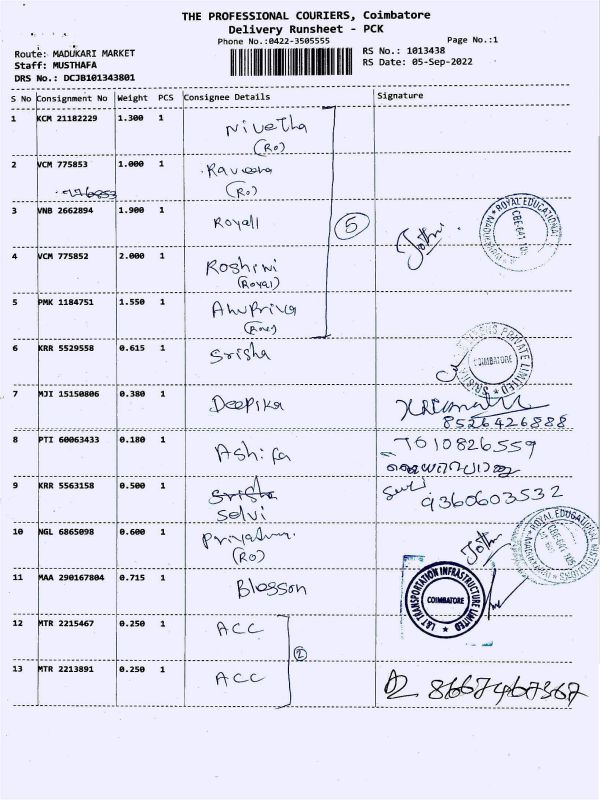 THE PROFESSIONAL COURIERS, Coimbatore
Delivery Runsheet - PCK
Phone No.:0422-3505555
Page No.:1
Route: MADUKARI MARKET
Staff: MUSTHAFA
DRS No.: DCJB101343801
RS No.: 1013438
RS Date: 05-Sep-2022
S No Consignment No Weight PCS Consignee Details Signature
1 KCM 21182229 1.300 1 Nivetha
(RO)
2 VCM 775853 1.000 1 Raveena
(RO)
3 VNB 2662894 1.900 1 Royall
5
ROYAL EDUCATIONAL
CBE-641 105
4 VCM 775852 2.000 1 Roshini
(Royal)
5 PMK 1184751 1.550 1 Anupriya
6 KRR 5529558 0.615 1 Srisha
PRIVATE LIMITED
COIMBATORE
7 MJI 15150806 0.380 1 Deepika
8526426888
8 PTI 60063433 0.180 1 Ashifa
7010826559
9 KRR 5563158 0.500 1 Srisha
Selvi
9360603532
10 NGL 6865098 0.600 1
(RO)
ROYAL EDUCATIONAL
CBE-641 105
11 MAA 290167804 0.715 1 Blesson
L&T TRANSPORTATION INFRASTRUCTURE LIMITED
COIMBATORE
12 MTR 2215467 0.250 1 ACC
2
13 MTR 2213891 0.250 1 ACC
8667467367